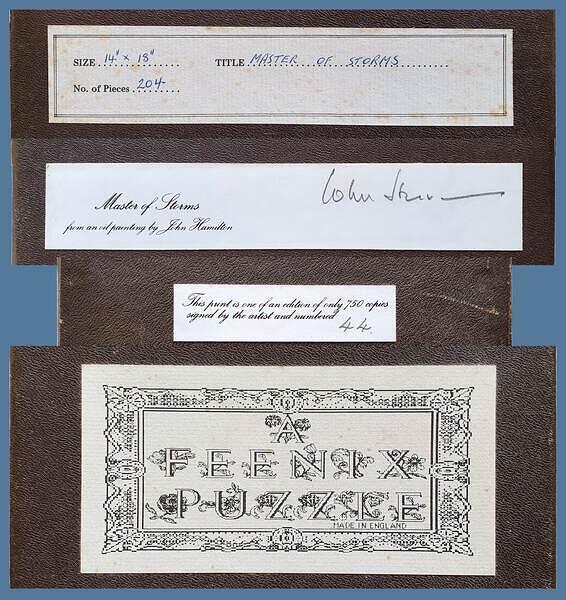 SIZE 14" x 18" TITLE MASTER OF STORMS
No. of Pieces 204
Master of Storms
from an oil painting by John Hamilton
John
This print is one of an edition of only 750 copies
signed by the artist and numbered 44
A
FEENIX
PUZZLE
MADE IN ENGLAND